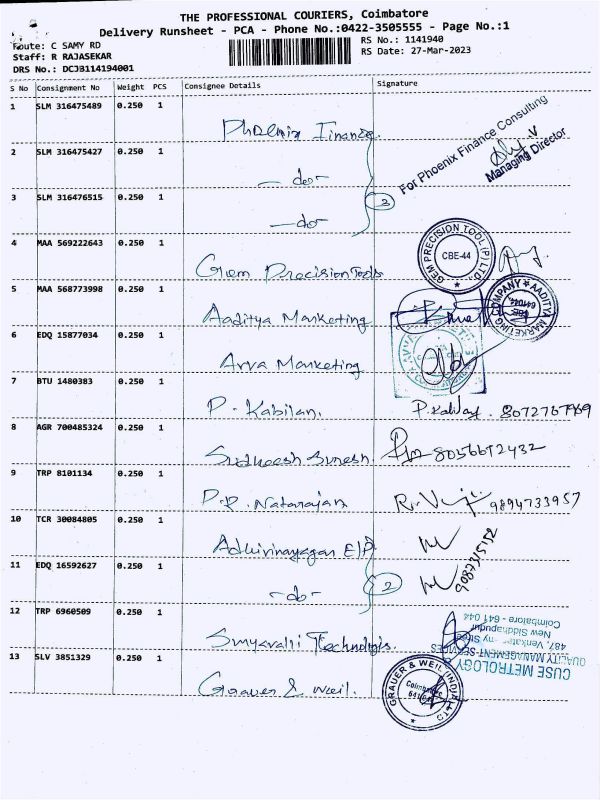 THE PROFESSIONAL COURIERS, Coimbatore
Delivery Runsheet - PCA - Phone No.:0422-3505555 - Page No.:1
Route: C SAMY RD
RS No.: 1141940
Staff: R RAJASEKAR
RS Date: 27-Mar-2023
DRS No.: DCJB114194001
S No Consignment No Weight PCS Consignee Details Signature
1 SLM 316475489 0.250 1 Phoenix Finance
For Phoenix Finance Consulting
Managing Director
2 SLM 316475427 0.250 1 -do-
3 SLM 316476515 0.250 1 -do- 3
4 MAA 569222643 0.250 1 Gem Precision Tools
GEM PRECISION TOOL (P) LTD
CBE-44
5 MAA 568773998 0.250 1 Aaditya Marketing
AADITYA MARKETING COMPANY
641044
6 EDQ 15877034 0.250 1 Arva Marketing
7 BTU 1480383 0.250 1 P. Kabilan.
8 AGR 700485324 0.250 1 Sudheesh Suresh 8056672432
9 TRP 8101134 0.250 1 P.P. Natarajan 9894733957
10 TCR 30084805 0.250 1 Adhivinayagan E/P
11 EDQ 16592627 0.250 1 -do- 2
9087315152
12 TRP 6960509 0.250 1 Suryavalli Technologies
CUSE METROLOGY
QUALITY MANAGEMENT SERVICES
New Siddhapudur
Coimbatore - 641 044
13 SLV 3851329 0.250 1 Grauer & Weil.
GRAUER & WEIL (INDIA) LTD
Coimbatore